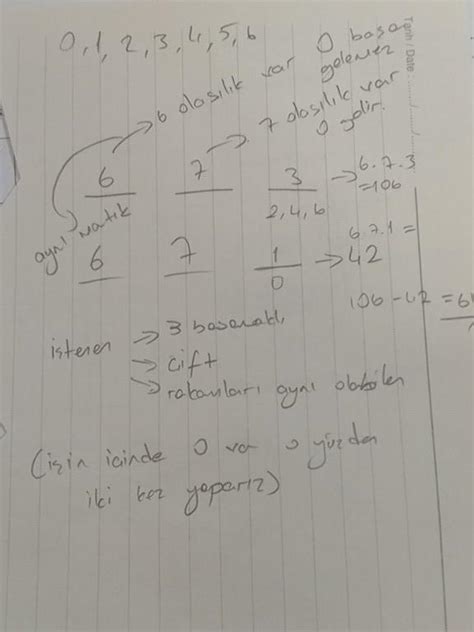 0, 1, 2, 3, 4, 5, 6
Tarih / Date :
6 olasılık var 0 başa gelemez
7 olasılık var
0 gelir.
6 7 3 → 6.7.3
=106
2, 4, 6
aynı mantık
6 7 1 → 6.7.1 =
42
0
106 - 42 = 6
istenen → 3 basamaklı
→ çift
→ rakamları aynı olabilen
(işin içinde 0 var o yüzden
iki kez yaparız)